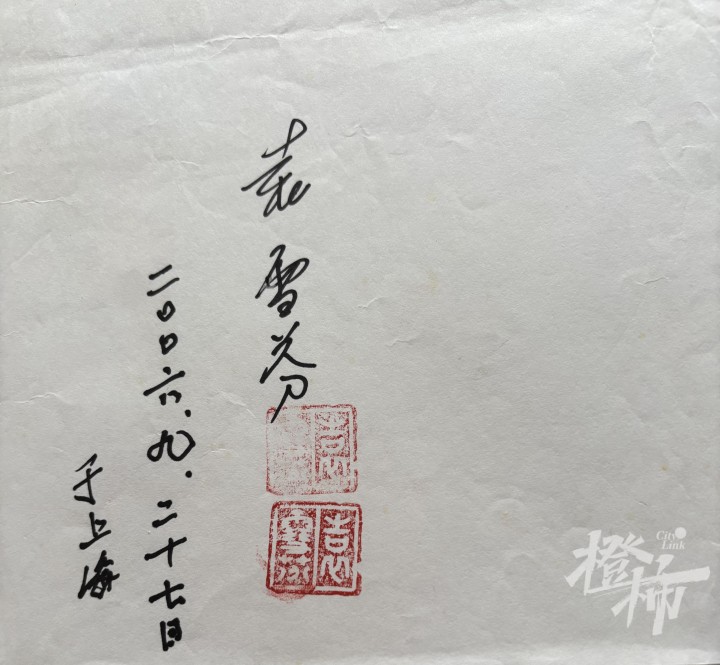 袁雪芬
二〇〇六、九、二十七日
于上海
City Link
橙柿